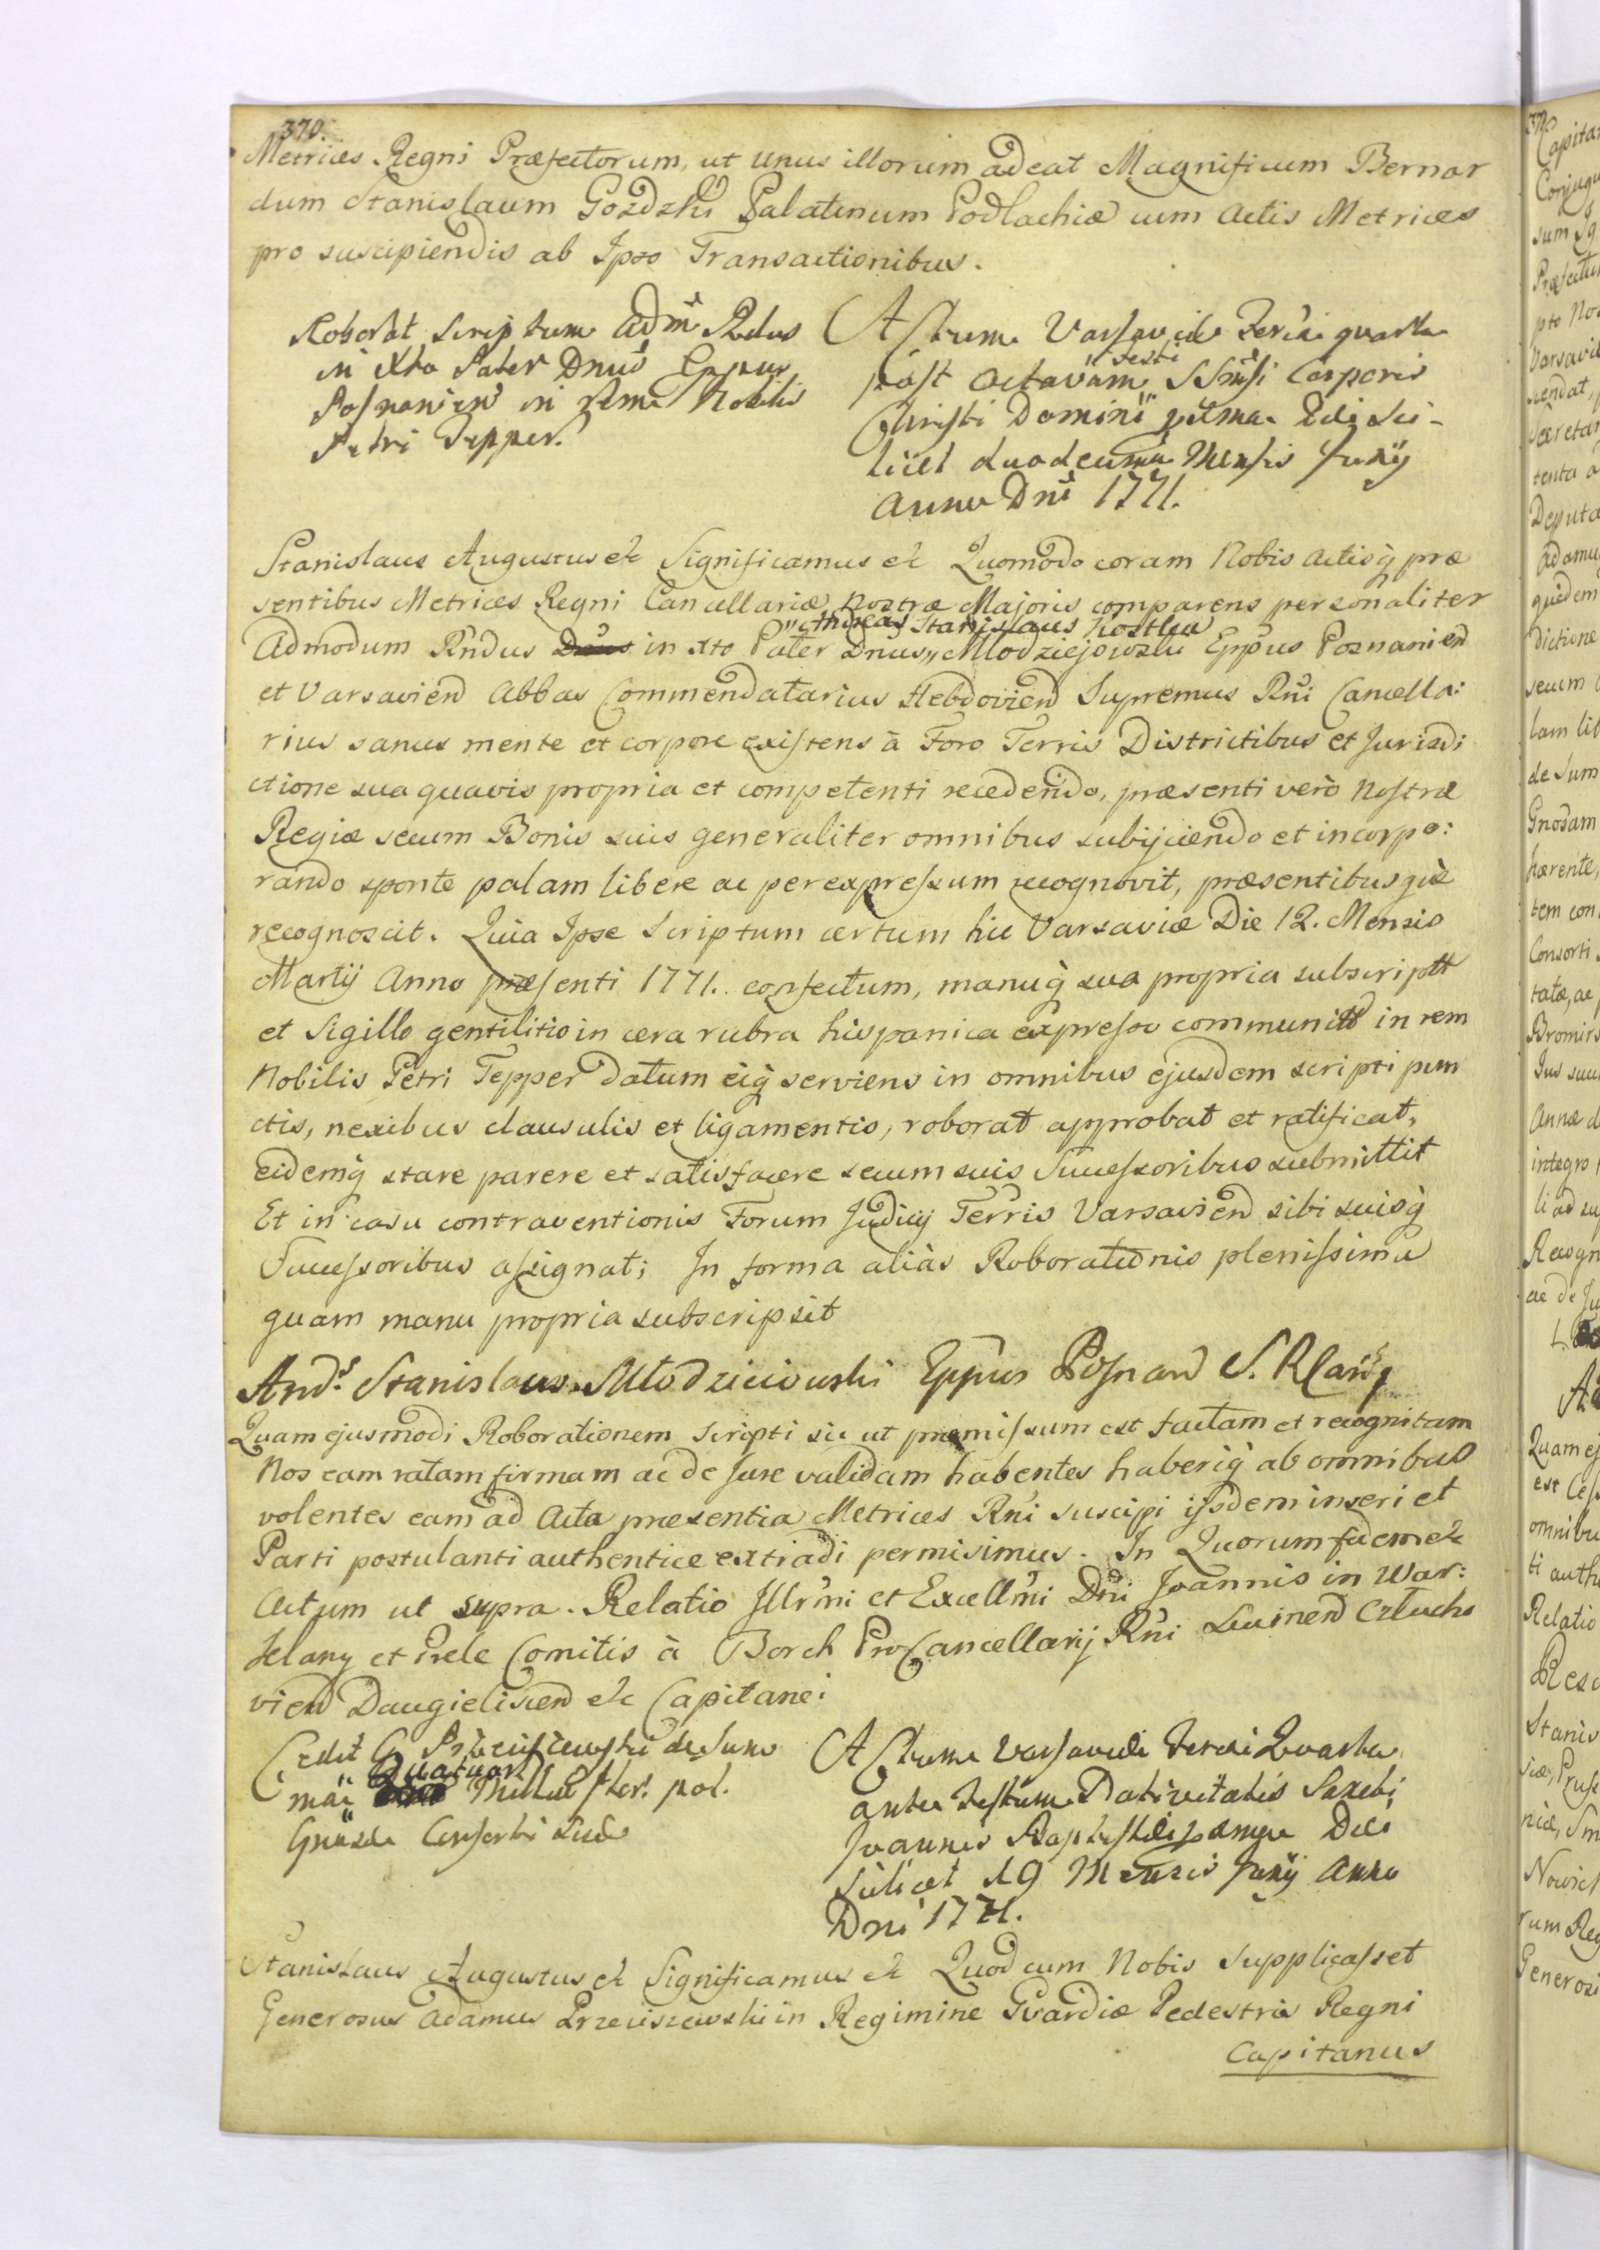 370.
Metrices Regni Præfectorum, ut unus illorum adeat Magnificum Bernar
dum Stanislaum Gozdzki Palatinum Podlachiæ cum Actis Metrices
pro suscipiendis ab Ipso Transactionibus.
Roborat Scriptum Adm Rndus
in Xto Pater Dnus Eppus
Posnanien in rem Nobilis
Petri Tepper.
Actum Varsaviæ Feria quarta
post Octavam Festi SSmi Corporis
Christi Domini Die Sci-
licet duodecima Mensis Junÿ
Anno Dni 1771.
Stanislaus Augustus etc Significamus etc Quomodo coram Nobis Actisq præ
sentibus Metrices Regni Cancellariæ Nostræ Majoris comparens personaliter
Andreas Stanislaus Kostka
Admodum Rndus in Xto Pater Dnus Młodziejowski Eppus Poznanien
et Varsavien Abbas Commendatarius Hebdovien Supremus Rni Cancella:
rius sanus mente et corpore existens à Foro Terris Districtibus et Jurisdi
ctione sua quavis propria et competenti recedendo, præsenti verò Nostræ
Regiæ secum Bonis suis generaliter omnibus subijciendo et incorpo:
rando sponte palam libere ac per expressum recognovit, præsentibusq
recognoscit. Quia Ipse Scriptum certum hic Varsaviæ Die 12. Mensis
Martij Anno præsenti 1771. confectum, manuq sua propria subscriptt
et Sigillo gentilitio in cera rubra hispanica expresso communitt in rem
Nobilis Petri Tepper datum eiq serviens in omnibus ejusdem scripti pun
ctis, nexibus clausulis et ligamentis, roborat approbat et ratificat,
eidemq stare parere et satisfacere secum suis Successoribus submittit
Et in casu contraventionis Forum Judicij Terris Varsavien sibi suisq
Successoribus assignat; In forma aliàs Roborationis plenissima
quam manu propria subscripsit
And. Stanislaus Młodzieiowski Eppus Posnan S. R Canc
Quam ejusmodi Roborationem Scripti sic ut præmissum est factam et recognitam
Nos eam ratam firmam ac de Jure validam habentes haberiq ab omnibus
volentes eam ad Acta præsentia Metrices Rni suscipi ijsdem inseri et
Parti postulanti authentice extradi permisimus. In Quorum fidem etc
Actum ut supra. Relatio Illrmi et Excellmi Dni Joannis in War:
klany et Prele Comitis à Borch ProCancellarij Rni Lucinen Człucho
vien Daugielisien etc Capitanei
Cedit G Przeciszewski de Sum
ma Quatuor Mille flor. pol.
Gnosæ Consorti suæ
Actum Varsaviæ Feria Quarta
ante Festum Nativitatis Sancti
Joannis Baptistæ Die
scilicet 19 Mensis Junÿ Anno
Dni 1771.
Stanislaus Augustus etc Significamus etc Quod cum Nobis supplicasset
Generosus Adamus Przeciszewski in Regimine Gvardiæ Pedestris Regni
Capitanus